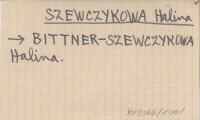 SZEWCZYKOWA Halina
→ BITTNER-SZEWCZYKOWA
Halina.